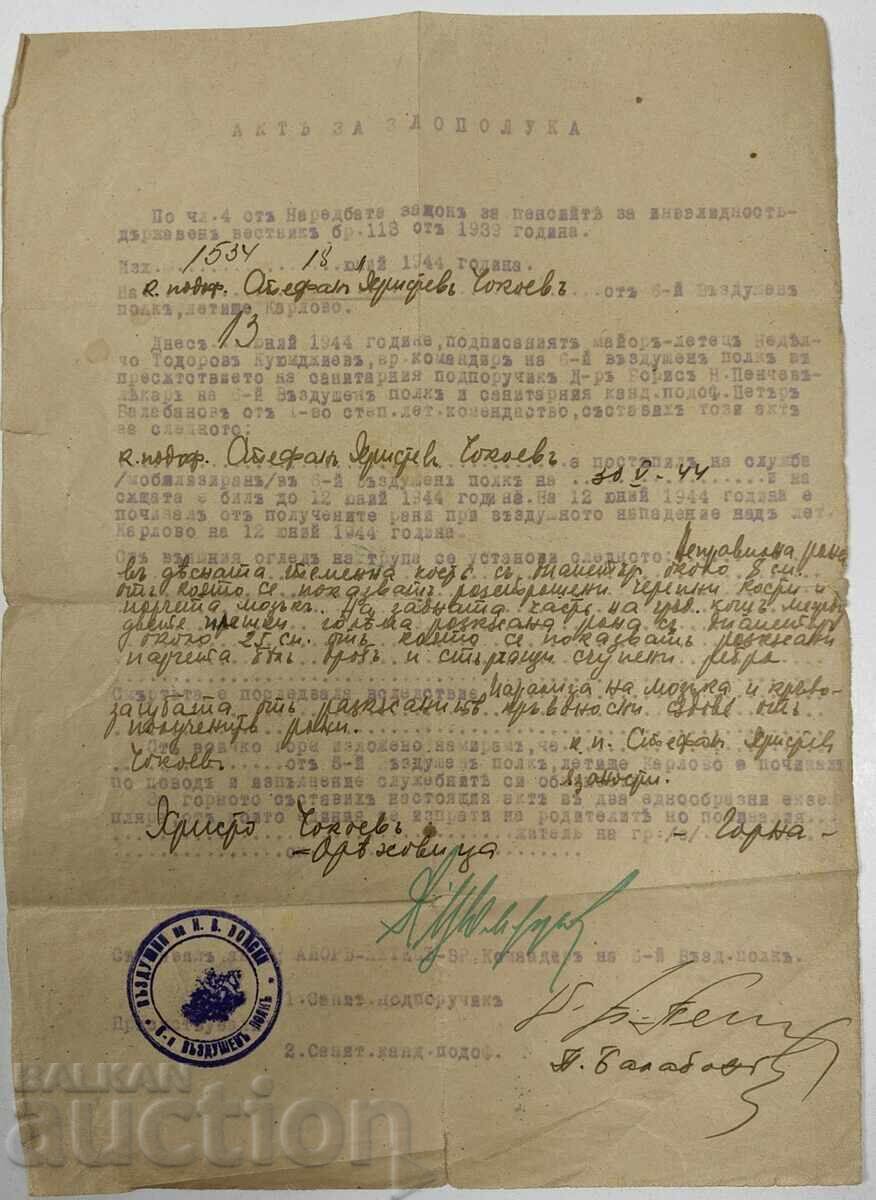 АКТЪ ЗА ЗЛОПОЛУКА
По чл.4 отъ Наредбата законъ за пенсийтѣ за инвалидность-
държавенъ вестникъ бр.113 отъ 1939 година.
Изх. 1534 18 юний 1944 година.
На к. подоф. Стефанъ Христевъ Чокоевъ отъ 6-й Въздушенъ
полкъ, летище Карлово.
Днесъ 13 юний 1944 година, подписаниятъ майоръ-летецъ Недѣл-
чо Тодоровъ Куюмджиевъ, вр. командиръ на 6-й въздушенъ полкъ въ
присѫтствието на санитарния подпоручикъ Д-ръ Борисъ Н. Пенчевъ-
лѣкаръ на 6-й Въздушенъ полкъ и санитарния канд. подоф. Петъръ
Балабановъ отъ 1-во степ. лет. комендаство, съставихъ този актъ
за следното:
к. подоф. Стефанъ Христевъ Чокоевъ е постѫпилъ на служба
/мобилизиранъ/ въ 6-й въздушенъ полкъ на 30 V - 44 и на
сѫщата е билъ до 12 юний 1944 година. На 12 юний 1944 година е
починалъ отъ получените рани при въздушното нападение надъ лет.
Карлово на 12 юний 1944 година.
Отъ външния огледъ на трупа се установи следното: Неправилна рана
въ дѣсната теменна кость съ диаметъръ около 8 см.
отъ която се показватъ разтрошени черепни кости и
парчета мозъкъ. На задната часть на гръд. кошъ между
двете плешки голѣма разкѫсана рана съ диаметъръ
около 25 см. отъ която се показватъ разкѫсани
парчета бѣлъ дробъ и стърчащи счупени ребра
Смъртьта е последвала вследствие парализа на мозъка и крево-
загубата отъ разкѫсанитѣ кръвоносни сѫдове отъ
полученитѣ рани.
Отъ всичко горе изложено намирамъ, че к. п. Стефанъ Христевъ
Чокоевъ отъ 6-й въздушенъ полкъ, летище Карлово е починалъ
по поводъ и изпълнение служебнитѣ си обязаности.
За горното съставихъ настоящия актъ въ два еднообразни екзем-
пляра, отъ които единия се изпрати на родителитѣ но починалия
Христо Чокоевъ жителъ на гр. /с/ - Горна -
- Орѣховица
Съставилъ МАЙОРЪ-ЛЕТЕЦЪ-Вр. Командиръ на 6-й Възд. полкъ.
1. Санит. подпоручикъ
2. Санит. канд. подоф. П. Балабановъ
ВЪЗДУШНИ НА Н. В. ВОЙСКИ
6-й ВЪЗДУШЕНЪ ПОЛКЪ
BALKAN
auction